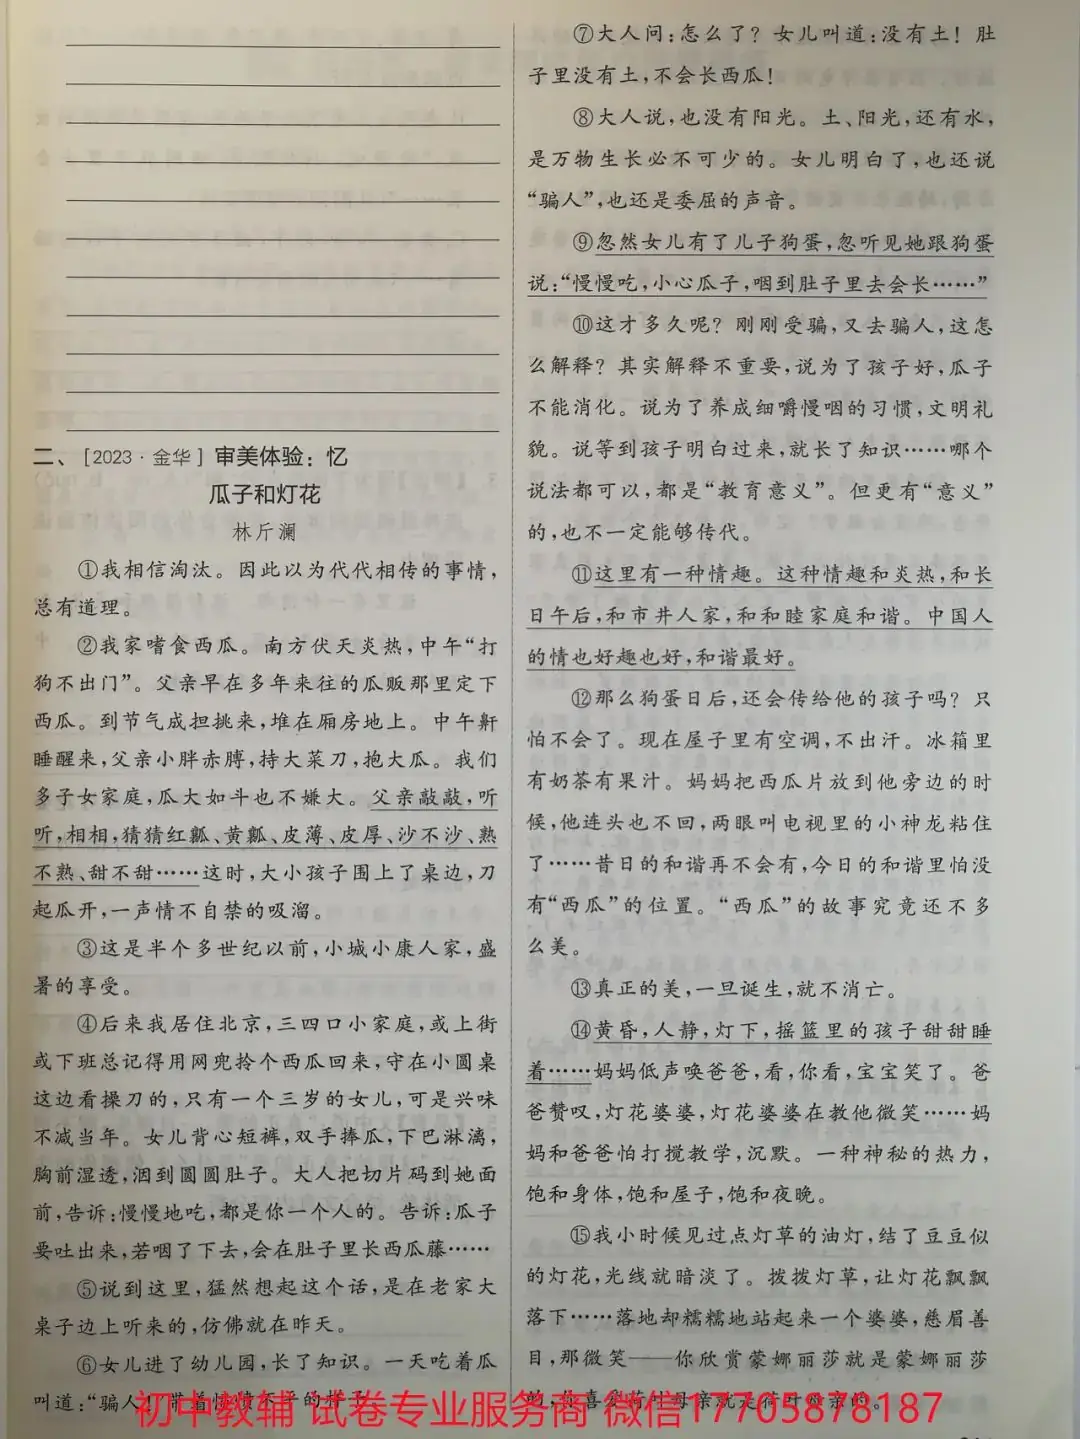 二、[2023·金华]审美体验：忆
瓜子和灯花
林斤澜
①我相信淘汰。因此以为代代相传的事情，
总有道理。
②我家嗜食西瓜。南方伏天炎热，中午“打
狗不出门”。父亲早在多年来往的瓜贩那里定下
西瓜。到节气成担挑来，堆在厢房地上。中午鼾
睡醒来，父亲小胖赤膊，持大菜刀，抱大瓜。我们
多子女家庭，瓜大如斗也不嫌大。父亲敲敲，听
听，相相，猜猜红瓤、黄瓤、皮薄、皮厚、沙不沙、熟
不熟、甜不甜……这时，大小孩子围上了桌边，刀
起瓜开，一声情不自禁的吸溜。
③这是半个多世纪以前，小城小康人家，盛
暑的享受。
④后来我居住北京，三四口小家庭，或上街
或下班总记得用网兜拎个西瓜回来，守在小圆桌
这边看操刀的，只有一个三岁的女儿，可是兴味
不减当年。女儿背心短裤，双手捧瓜，下巴淋漓，
胸前湿透，洇到圆圆肚子。大人把切片码到她面
前，告诉：慢慢地吃，都是你一个人的。告诉：瓜子
要吐出来，若咽了下去，会在肚子里长西瓜藤……
⑤说到这里，猛然想起这个话，是在老家大
桌子边上听来的，仿佛就在昨天。
⑥女儿进了幼儿园，长了知识。一天吃着瓜
叫道：“骗人！带着
的样子
⑦大人问：怎么了？女儿叫道：没有土！肚
子里没有土，不会长西瓜！
⑧大人说，也没有阳光。土、阳光，还有水，
是万物生长必不可少的。女儿明白了，也还说
“骗人”，也还是委屈的声音。
⑨忽然女儿有了儿子狗蛋，忽听见她跟狗蛋
说：“慢慢吃，小心瓜子，咽到肚子里去会长……”
⑩这才多久呢？刚刚受骗，又去骗人，这怎
么解释？其实解释不重要，说为了孩子好，瓜子
不能消化。说为了养成细嚼慢咽的习惯，文明礼
貌。说等到孩子明白过来，就长了知识……哪个
说法都可以，都是“教育意义”。但更有“意义”
的，也不一定能够传代。
⑪这里有一种情趣。这种情趣和炎热，和长
日午后，和市井人家，和和睦家庭和谐。中国人
的情也好趣也好，和谐最好。
⑫那么狗蛋日后，还会传给他的孩子吗？只
怕不会了。现在屋子里有空调，不出汗。冰箱里
有奶茶有果汁。妈妈把西瓜片放到他旁边的时
候，他连头也不回，两眼叫电视里的小神龙粘住
了……昔日的和谐再不会有，今日的和谐里怕没
有“西瓜”的位置。“西瓜”的故事究竟还不多
么美。
⑬真正的美，一旦诞生，就不消亡。
⑭黄昏，人静，灯下，摇篮里的孩子甜甜睡
着……妈妈低声唤爸爸，看，你看，宝宝笑了。爸
爸赞叹，灯花婆婆，灯花婆婆在教他微笑……妈
妈和爸爸怕打搅教学，沉默。一种神秘的热力，
饱和身体，饱和屋子，饱和夜晚。
⑮我小时候见过点灯草的油灯，结了豆豆似
的灯花，光线就暗淡了。拨拨灯草，让灯花飘飘
落下……落地却糯糯地站起来一个婆婆，慈眉善
目，那微笑——你欣赏蒙娜丽莎就是蒙娜丽莎
的，你喜爱荷叶母亲就是荷叶母亲的。
初中教辅 试卷专业服务商 微信17705878187